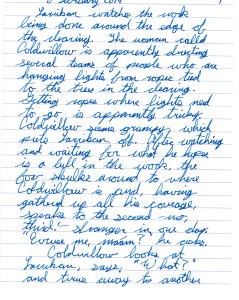 February 2019
Larikan watches the work
being done around the edge of
the clearing. The woman called
Coldwillow is apparently directing
several teams of people who are
hanging lights from ropes tied
to the trees in the clearing.
Getting ropes where lights need
to go is apparently tricky.
Coldwillow seems grumpy, which
puts Larrikan off. After watching
and waiting for what he hopes
is a lull in the work, the
fox shuffles around to where
Coldwillow is and, having
gathered up all his courage,
speaks to the second – no,
third! – stranger in one day.
"'Scuse me, ma'am?" he asks.
Coldwillow looks at
Larrikan, says, "What?"
and turns away to another